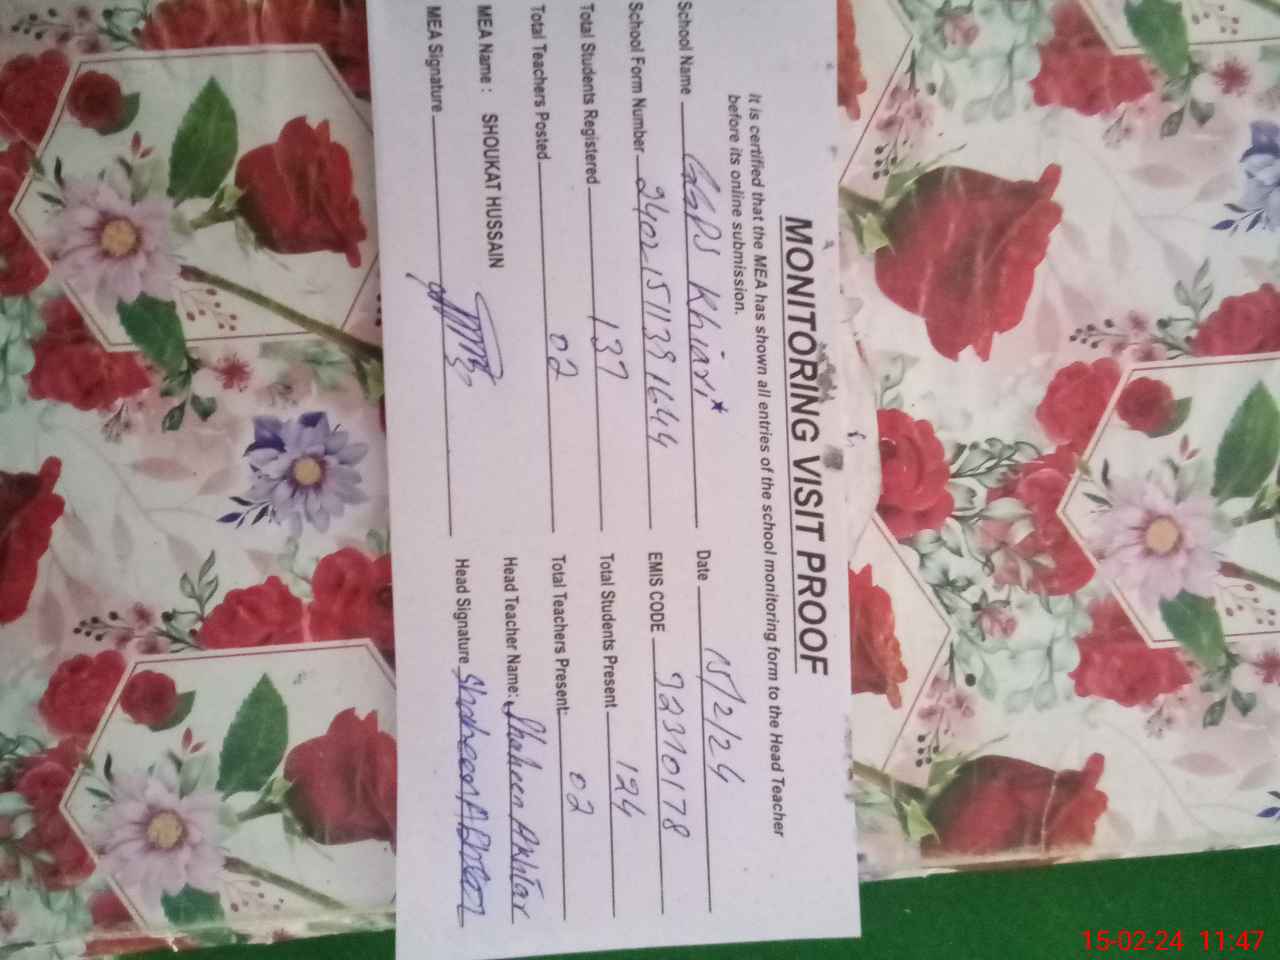 MONITORING VISIT PROOF
It is certified that the MEA has shown all entries of the school monitoring form to the Head Teacher
before its online submission.
School Name GGPS Khirri Date 15/2/24
School Form Number 2402151139 1644 EMIS CODE 72310178
Total Students Registered 137 Total Students Present 124
Total Teachers Posted 02 Total Teachers Present: 02
MEA Name : SHOUKAT HUSSAIN Head Teacher Name: Shaheen Akhtar
MEA Signature Head Signature Shaheen Akhtar
15-02-24 11:47